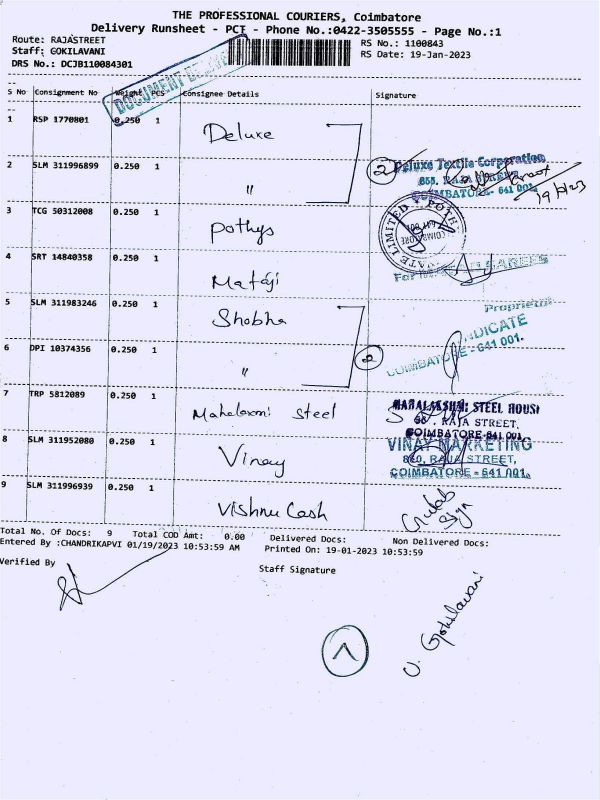 THE PROFESSIONAL COURIERS, Coimbatore
Delivery Runsheet - PCT - Phone No.:0422-3505555 - Page No.:1
Route: RAJASTREET RS No.: 1100843
Staff: GOKILAVANI RS Date: 19-Jan-2023
DRS No.: DCJB110084301
DOCUMENT
S No Consignment No Weight PCS Consignee Details Signature
1 RSP 1770801 0.250 1 Deluxe
2 SLM 311996899 0.250 1 " 2 Deluxe Textile Corporation
855, RAJA STREET,
COIMBATORE- 641 001.
19/1/23
3 TCG 50312008 0.250 1 Pothys
4 SRT 14840358 0.250 1 Mataji For
Proprietor
5 SLM 311983246 0.250 1 Shobha
SYNDICATE
COIMBATORE - 641 001.
6 DPI 10374356 0.250 1 " 2
7 TRP 5812089 0.250 1 Mahalaxmi Steel MAHALAKSHMI STEEL HOUSE
RAJA STREET,
COIMBATORE-641 001.
8 SLM 311952080 0.250 1 Vinay VINAY MARKETING
840, RAJA STREET,
COIMBATORE - 641 001.
9 SLM 311996939 0.250 1 Vishnu Cash Gulab
Sign
Total No. Of Docs: 9 Total COD Amt: 0.00 Delivered Docs: Non Delivered Docs:
Entered By :CHANDRIKAPVI 01/19/2023 10:53:59 AM Printed On: 19-01-2023 10:53:59
Verified By Staff Signature
V. Gokilavani